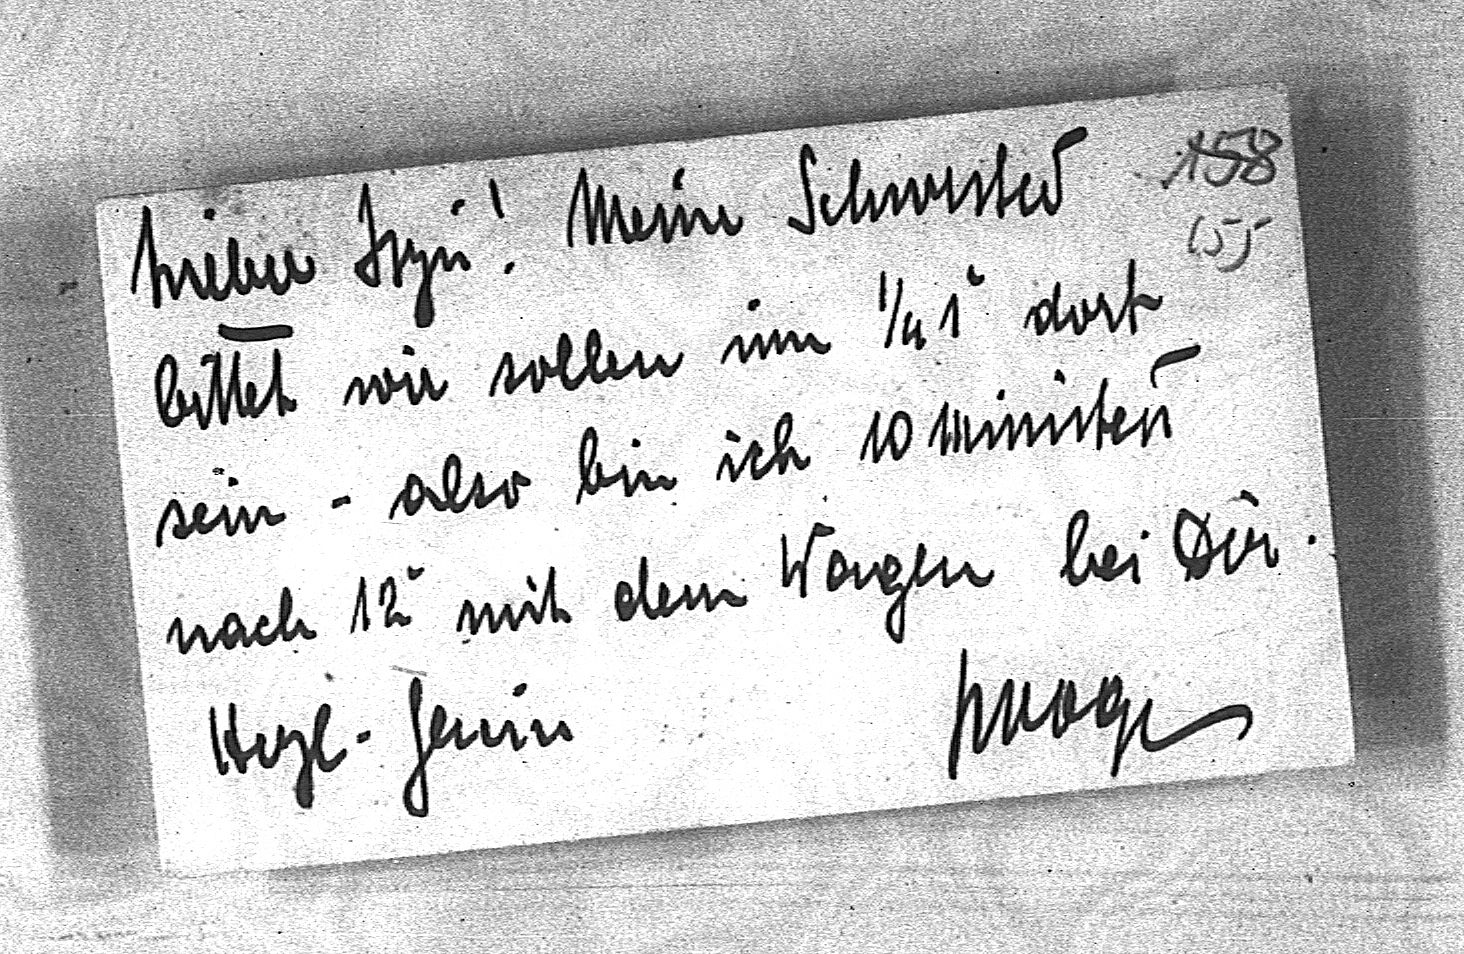 Lieber Hugo! Meine Schwester 158
155
bittet wir sollen um 1/4 1h dort
sein - also bin ich 10 Minuten
nach 12h mit dem Wagen bei Dir.
Herzl.